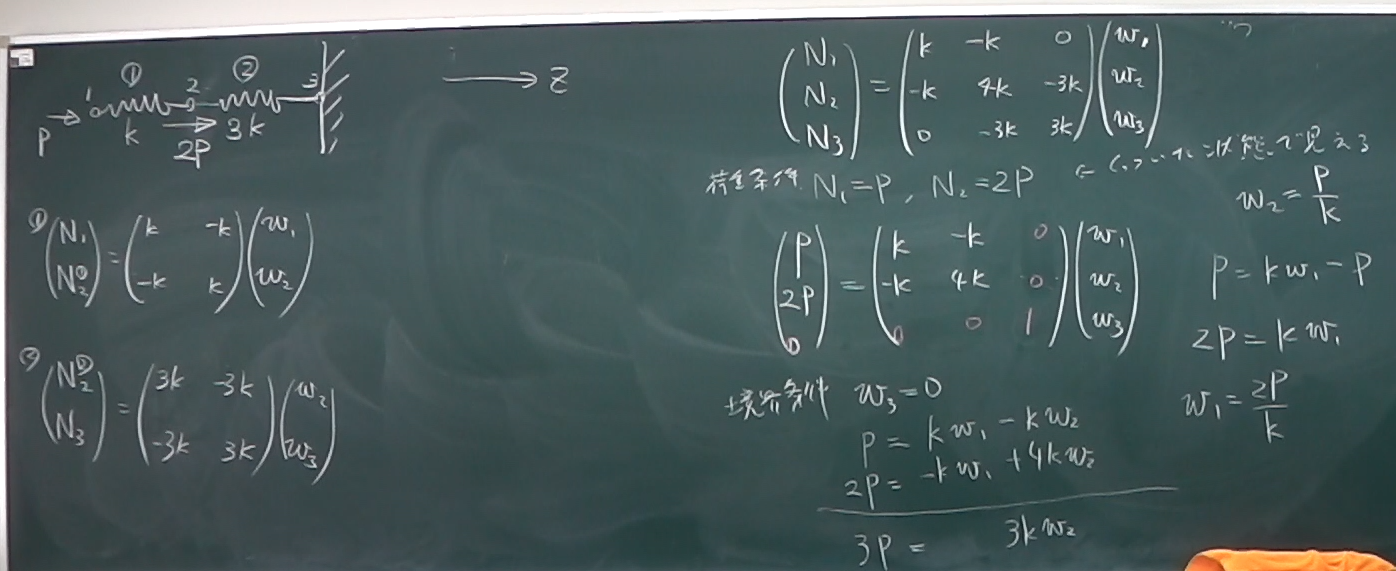 ① ②
1 2 3
P k 2P 3k
→ z
① (N₁ N₂①) = (k -k -k k) (w₁ w₂)
② (N₂② N₃) = (3k -3k -3k 3k) (w₂ w₃)
(N₁ N₂ N₃) = (k -k 0 -k 4k -3k 0 -3k 3k) (w₁ w₂ w₃)
荷重条件 N₁=P, N₂=2P ← くっついた状態で見える
(P 2P 0) = (k -k 0 -k 4k 0 0 0 1) (w₁ w₂ w₃)
境界条件 w₃=0
P = kw₁ - kw₂
2P = -kw₁ + 4kw₂
3P = 3kw₂
w₂ = P/k
P = kw₁ - P
2P = kw₁
w₁ = 2P/k